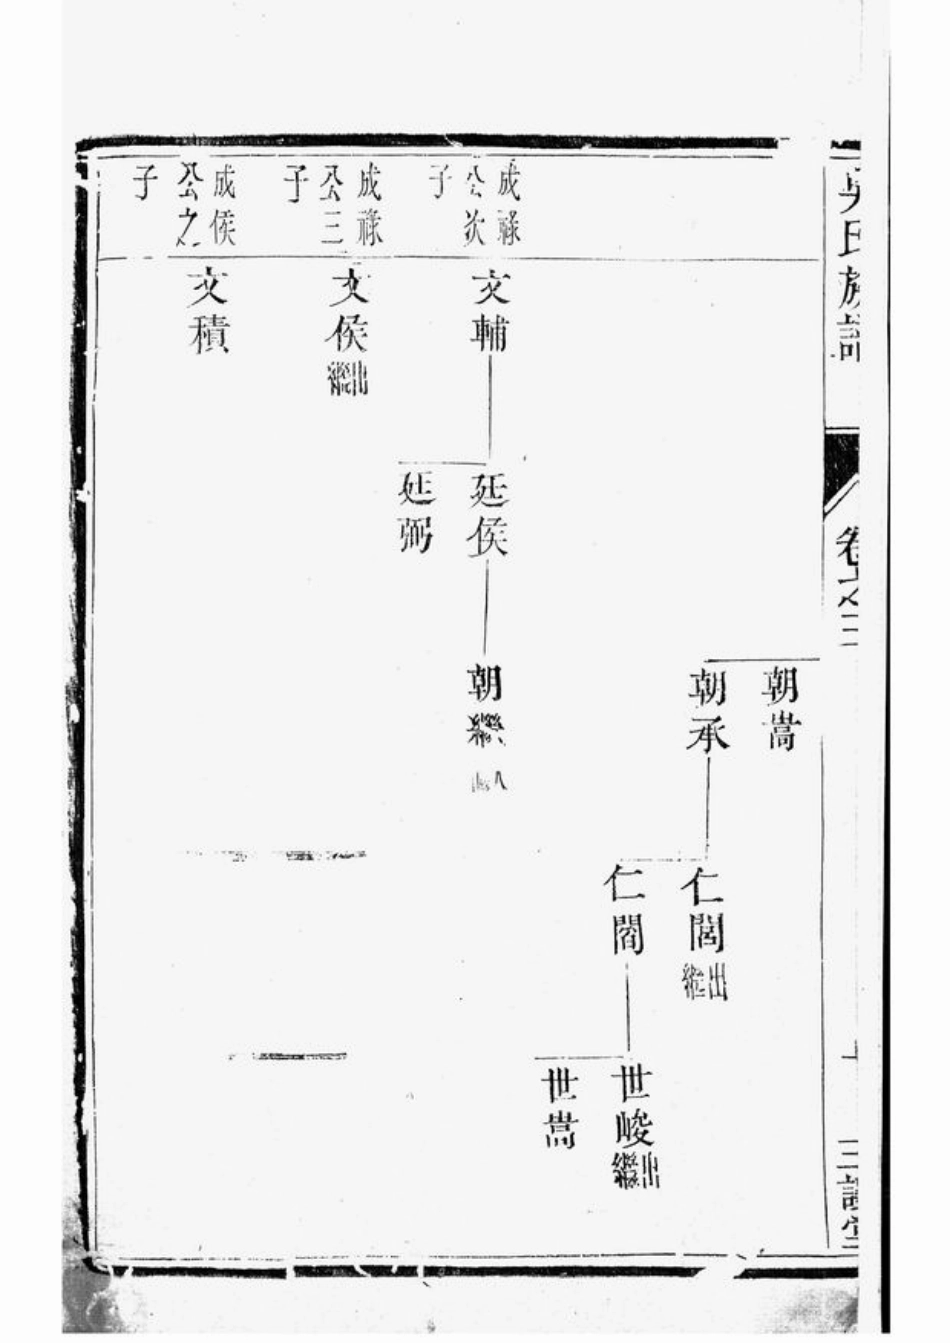 吳氏族譜
卷之三
三讓堂
朝嵩
朝承
仁閭
出繼
仁閣
世峻
出繼
世嵩
成祿公次子
文輔
廷侯
朝
廷弼
成祿公三子
文侯
出繼
成侯公之子
文積